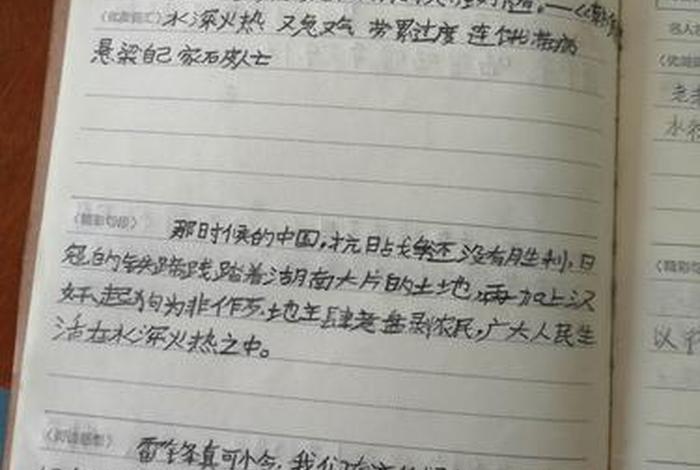 《优美词汇》水深火热 又兔又气 劳累过度 连饿带病
悬梁自己 家石皮人亡
《精彩句段》 那时候的中国,抗日战争还没有胜利,日
寇的铁蹄践踏着湖南大片的土地,再加上汉
奸、走狗为非作歹.地主肆意盘剥农民,广大人民生
活在水深火热之中。
《阅读感想》 雷锋真可怜,我们
名人名
《优美词
老老
水彩
《精彩句
以行